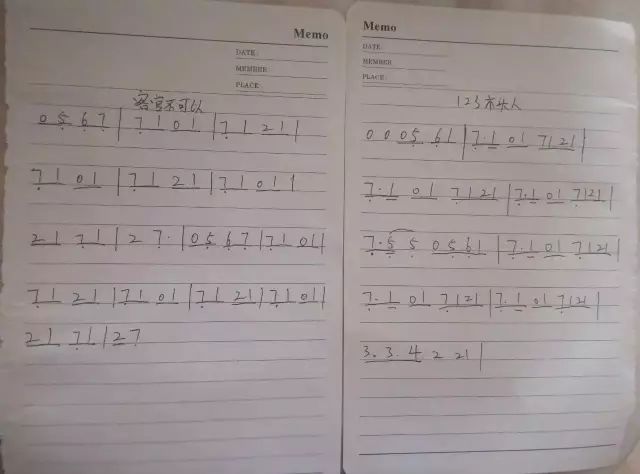 Memo
DATE:
MEMBER:
PLACE:
客官不可以
0 5 6 7 | 7 1 0 1 | 7 1 2 1 |
7 1 0 1 | 7 1 2 1 | 7 1 0 1 |
2 1 7 1 | 2 7. | 0 5 6 7 | 7 1 0 1 |
7 1 2 1 | 7 1 0 1 | 7 1 2 1 | 7 1 0 1 |
2 1 7 1 | 2 7
Memo
DATE:
MEMBER:
PLACE:
123木头人
0 0 0 5 6 1 | 7. 1 0 1 7 1 2 1 |
7. 1 0 1 7 1 2 1 | 7. 1 0 1 7 1 2 1 |
7. 5 5 0 5 6 1 | 7. 1 0 1 7 1 2 1 |
7. 1 0 1 7 1 2 1 | 7. 1 0 1 7 1 2 1 |
3. 3. 4 2 2 1 |